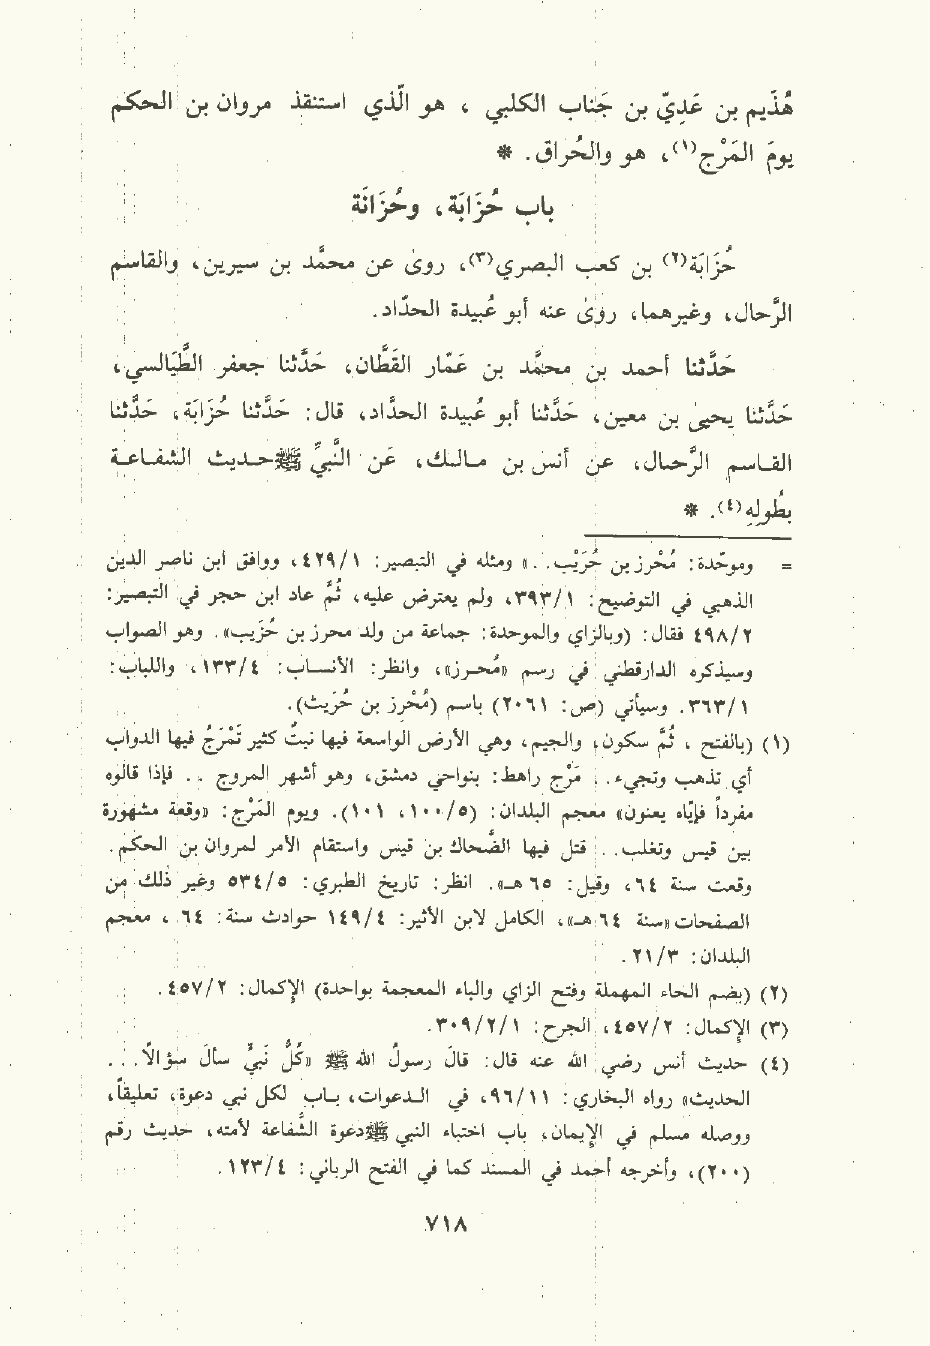 هُذَيم بن عَدِيّ بن جَناب الكلبي ، هو الّذي استنقذ مروان بن الحكم
يومَ المَرْج(١)، هو والحُراق. *
باب حُزَابَة، وحُزَانَة
حُزَابَة(٢) بن كعب البصري(٣)، روىٰ عن محمّد بن سيرين، والقاسم
الرَّحال، وغيرهما، روىٰ عنه أبو عُبيدة الحدّاد.
حَدَّثنا أحمد بن محمَّد بن عَمّار القَطَّان، حَدَّثنا جعفر الطَّيَالسي،
حَدَّثنا يحيىٰ بن معين، حَدَّثنا أبو عُبيدة الحدَّاد، قال: حَدَّثنا حُزَابَة، حَدَّثنا
القاسم الرَّحال، عن أنس بن مالك، عَن النَّبيِّ ﷺ حديث الشفاعة
بطُولِهِ(٤). *
= وموحّدة: مُحْرز بن حُرَيْب.. » ومثله في التبصير: ٤٢٩/١، ووافق ابن ناصر الدين
الذهبي في التوضيح: ٣٩٣/١، ولم يعترض عليه، ثُمَّ عاد ابن حجر في التبصير:
٤٩٨/٢ فقال: (وبالزاي والموحدة: جماعة من ولد محرز بن حُزيب». وهو الصواب
وسيذكره الدارقطني في رسم «مُحرز»، وانظر: الأنساب: ١٣٣/٤، واللباب:
٣٦٣/١. وسيأتي (ص: ٢٠٦١) باسم (مُحْرز بن حُرَيث).
(١) (بالفتح ، ثُمَّ سكون، والجيم، وهي الأرض الواسعة فيها نبتٌ كثير تَمْرَجُ فيها الدواب
أي تذهب وتجيء.. مَرْج راهط: بنواحي دمشق، وهو أشهر المروج .. فإذا قالوه
مفرداً فإيّاه يعنون» معجم البلدان: (١٠٠/٥، ١٠١). ويوم المَرْج: «وقعة مشهورة
بين قيس وتغلب.. قتل فيها الضّحاك بن قيس واستقام الأمر لمروان بن الحكم.
وقعت سنة ٦٤، وقيل: ٦٥ هـ». انظر: تاريخ الطبري: ٥٣٤/٥ وغير ذلك من
الصفحات «سنة ٦٤ هـ»، الكامل لابن الأثير: ١٤٩/٤ حوادث سنة: ٦٤ ، معجم
البلدان: ٢١/٣.
(٢) (بضم الحاء المهملة وفتح الزاي والباء المعجمة بواحدة) الإكمال: ٤٥٧/٢.
(٣) الإكمال: ٤٥٧/٢، الجرح: ٣٠٩/٢/١.
(٤) حديث أنس رضي الله عنه قال: قالَ رسولُ الله ﷺ «كُلُّ نَبيٍّ سألَ سؤالاً...
الحديث» رواه البخاري: ٩٦/١١، في الدعوات، باب لكل نبي دعوة، تعليقاً،
ووصله مسلم في الإيمان، باب اختباء النبي ﷺ دعوة الشَّفاعة لأمته، حديث رقم
(٢٠٠)، وأخرجه أحمد في المسند كما في الفتح الرباني: ١٢٣/٤.
٧١٨